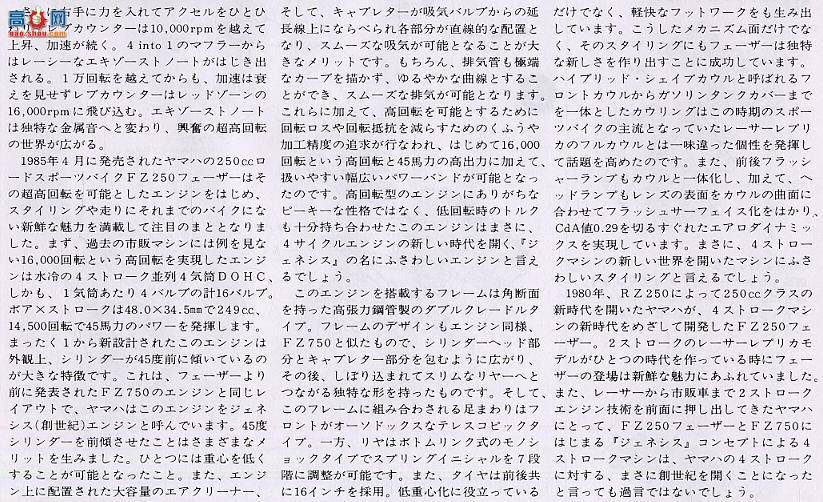 高手网
右手に力を入れてアクセルをひとひ
カウンターは10,000rpmを越えて
上昇、加速が続く。4 into 1のマフラーから
はレーシーなエキゾーストノートがはじき出
される。1万回転を越えてからも、加速は衰
えを見せずレブカウンターはレッドゾーンの
16,000rpmに飛び込む。エキゾーストノート
は独特な金属音へと変わり、興奮の超高回転
の世界が広がる。
1985年4月に発売されたヤマハの250ccロ
ードスポーツバイクFZ250フェーザーはそ
の超高回転を可能としたエンジンをはじめ、
スタイリングや走りにそれまでのバイクにな
い新鮮な魅力を満載して注目のまととなりま
した。まず、過去の市販マシンには例を見な
い16,000回転という高回転を実現したエンジ
ンは水冷の4ストローク並列4気筒DOHC、
しかも、1気筒あたり4バルブの計16バルブ。
ボア×ストロークは48.0×34.5mmで249cc、
14,500回転で45馬力のパワーを発揮します。
まったく1から新設計されたこのエンジンは
外観上、シリンダーが45度前に傾いているの
が大きな特徴です。これは、フェーザーより
前に発表されたFZ750のエンジンと同じレ
イアウトで、ヤマハはこのエンジンをジェネ
シス(創世紀)エンジンと呼んでいます。45度
シリンダーを前傾させたことはさまざまなメ
リットを生みました。ひとつには重心を低く
することが可能となったこと。また、エンジ
ン上に配置された大容量のエアクリーナー、
そして、キャブレターが吸気バルブからの延
長線上にならべられ各部分が直線的な配置と
なり、スムーズな吸気が可能となることが大
きなメリットです。もちろん、排気管も極端
なカーブを描かず、ゆるやかな曲線とするこ
とができ、スムーズな排気が可能となります。
これらに加えて、高回転を可能とするために
回転ロスや回転抵抗を減らすためのくふうや
加工精度の追求が行なわれ、はじめて16,000
回転という高回転と45馬力の高出力に加えて、
扱いやすい幅広いパワーバンドが可能となっ
たのです。高回転型のエンジンにありがちな
ピーキーな性格ではなく、低回転時のトルク
も十分持ち合わせたこのエンジンはまさに、
4サイクルエンジンの新しい時代を開く、『ジ
ェネシス』の名にふさわしいエンジンと言え
るでしょう。
このエンジンを搭載するフレームは角断面
を持った高張力鋼管製のダブルクレードルタ
イプ。フレームのデザインもエンジン同様、
FZ750と似たもので、シリンダーヘッド部
分とキャブレター部分を包むように広がり、
その後、しぼり込まれてスリムなリヤーへと
つながる独特な形を持ったものです。そして、
このフレームに組み合わされる足まわりはフ
ロントがオーソドックスなテレスコピックタ
イプ。一方、リヤはボトムリンク式のモノシ
ョックタイプでスプリングイニシャルを7段
階に調整が可能です。また、タイヤは前後共
に16インチを採用。低重心化に役立っている
だけでなく、軽快なフットワークをも生み出
しています。こうしたメカニズム面だけでな
く、そのスタイリングにもフェーザーは独特
な新しさを作り出すことに成功しています。
ハイブリッド・シェイプカウルと呼ばれるフ
ロントカウルからガソリンタンクカバーまで
を一体としたカウリングはこの時期のスポー
ツバイクの主流となっていたレーサーレプリ
カのフルカウルとは一味違った個性を発揮し
て話題を高めたのです。また、前後フラッシ
ャーランプもカウルと一体化し、加えて、ヘ
ッドランプもレンズの表面をカウルの曲面に
合わせてフラッシュサーフェイス化をはかり、
CdA値0.29を切るすぐれたエアロダイナミッ
クスを実現しています。まさに、4ストロー
クマシンの新しい世界を開いたマシンにふさ
わしいスタイリングと言えるでしょう。
1980年、RZ250によって250ccクラスの
新時代を開いたヤマハが、4ストロークマシ
ンの新時代をめざして開発したFZ250フェ
ーザー。2ストロークのレーサーレプリカモ
デルがひとつの時代を作っている時にフェー
ザーの登場は新鮮な魅力にあふれていました。
また、レーサーから市販車まで2ストローク
エンジン技術を前面に押し出してきたヤマハ
にとって、FZ250フェーザーとFZ750に
はじまる『ジェネシス』コンセプトによる4
ストロークマシンは、ヤマハの4ストローク
に対する、まさに創世紀を開くことになった
と言っても過言ではないでしょう。